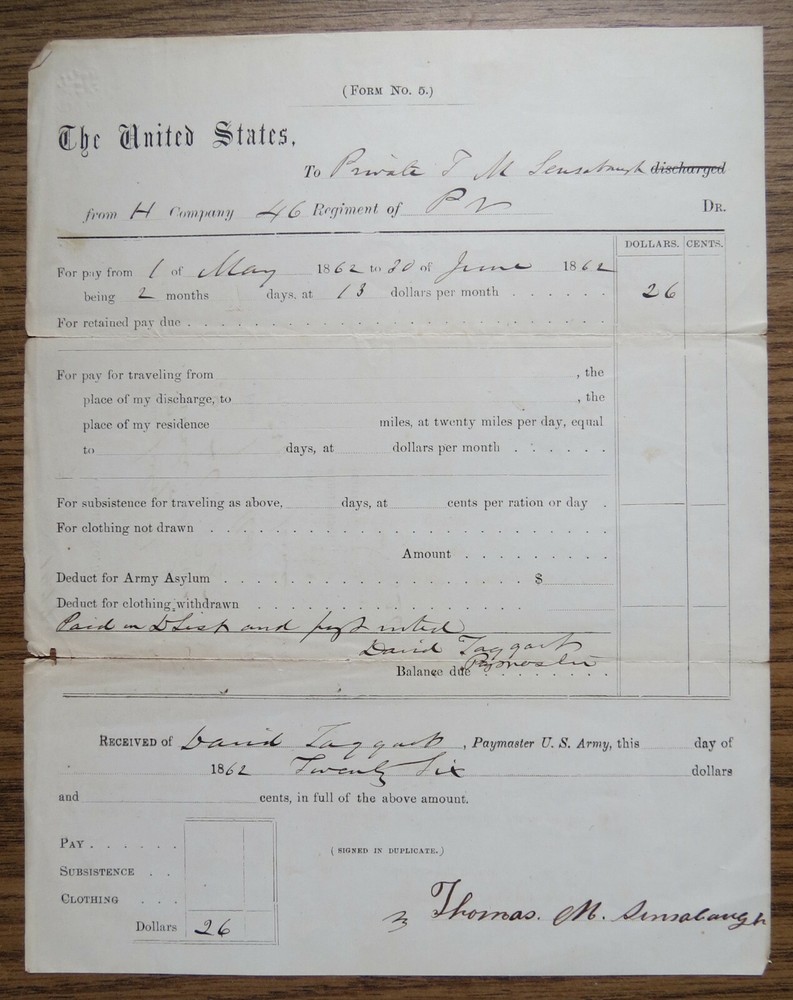 (FORM No. 5.)
The United States,
To Private T M Sensabaugh discharged
from H Company 46 Regiment of P V DR.
DOLLARS. CENTS.
For pay from 1 of May 1862 to 30 of June 1862
being 2 months days, at 13 dollars per month . . . . . . 26
For retained pay due . . . . . . . . . . . . . . . . . . . . . . . .
For pay for traveling from , the
place of my discharge, to , the
place of my residence miles, at twenty miles per day, equal
to days, at dollars per month . . . . . .
For subsistence for traveling as above, days, at cents per ration or day .
For clothing not drawn . . . . . . . . . . . . . . . . . . . . . .
Amount . . . . . . . .
Deduct for Army Asylum . . . . . . . . . . . . . . . . . $
Deduct for clothing withdrawn . . . . . . . . . . . . . .
Paid on D List and noted
David Taggart
Paymaster
Balance due . . . . . . .
RECEIVED of David Taggart , Paymaster U. S. Army, this day of
1862 Twenty Six dollars
and cents, in full of the above amount.
PAY . . . . . .
(SIGNED IN DUPLICATE.)
SUBSISTENCE . .
CLOTHING . . .
Dollars 26
Thomas. M. Sensabaugh